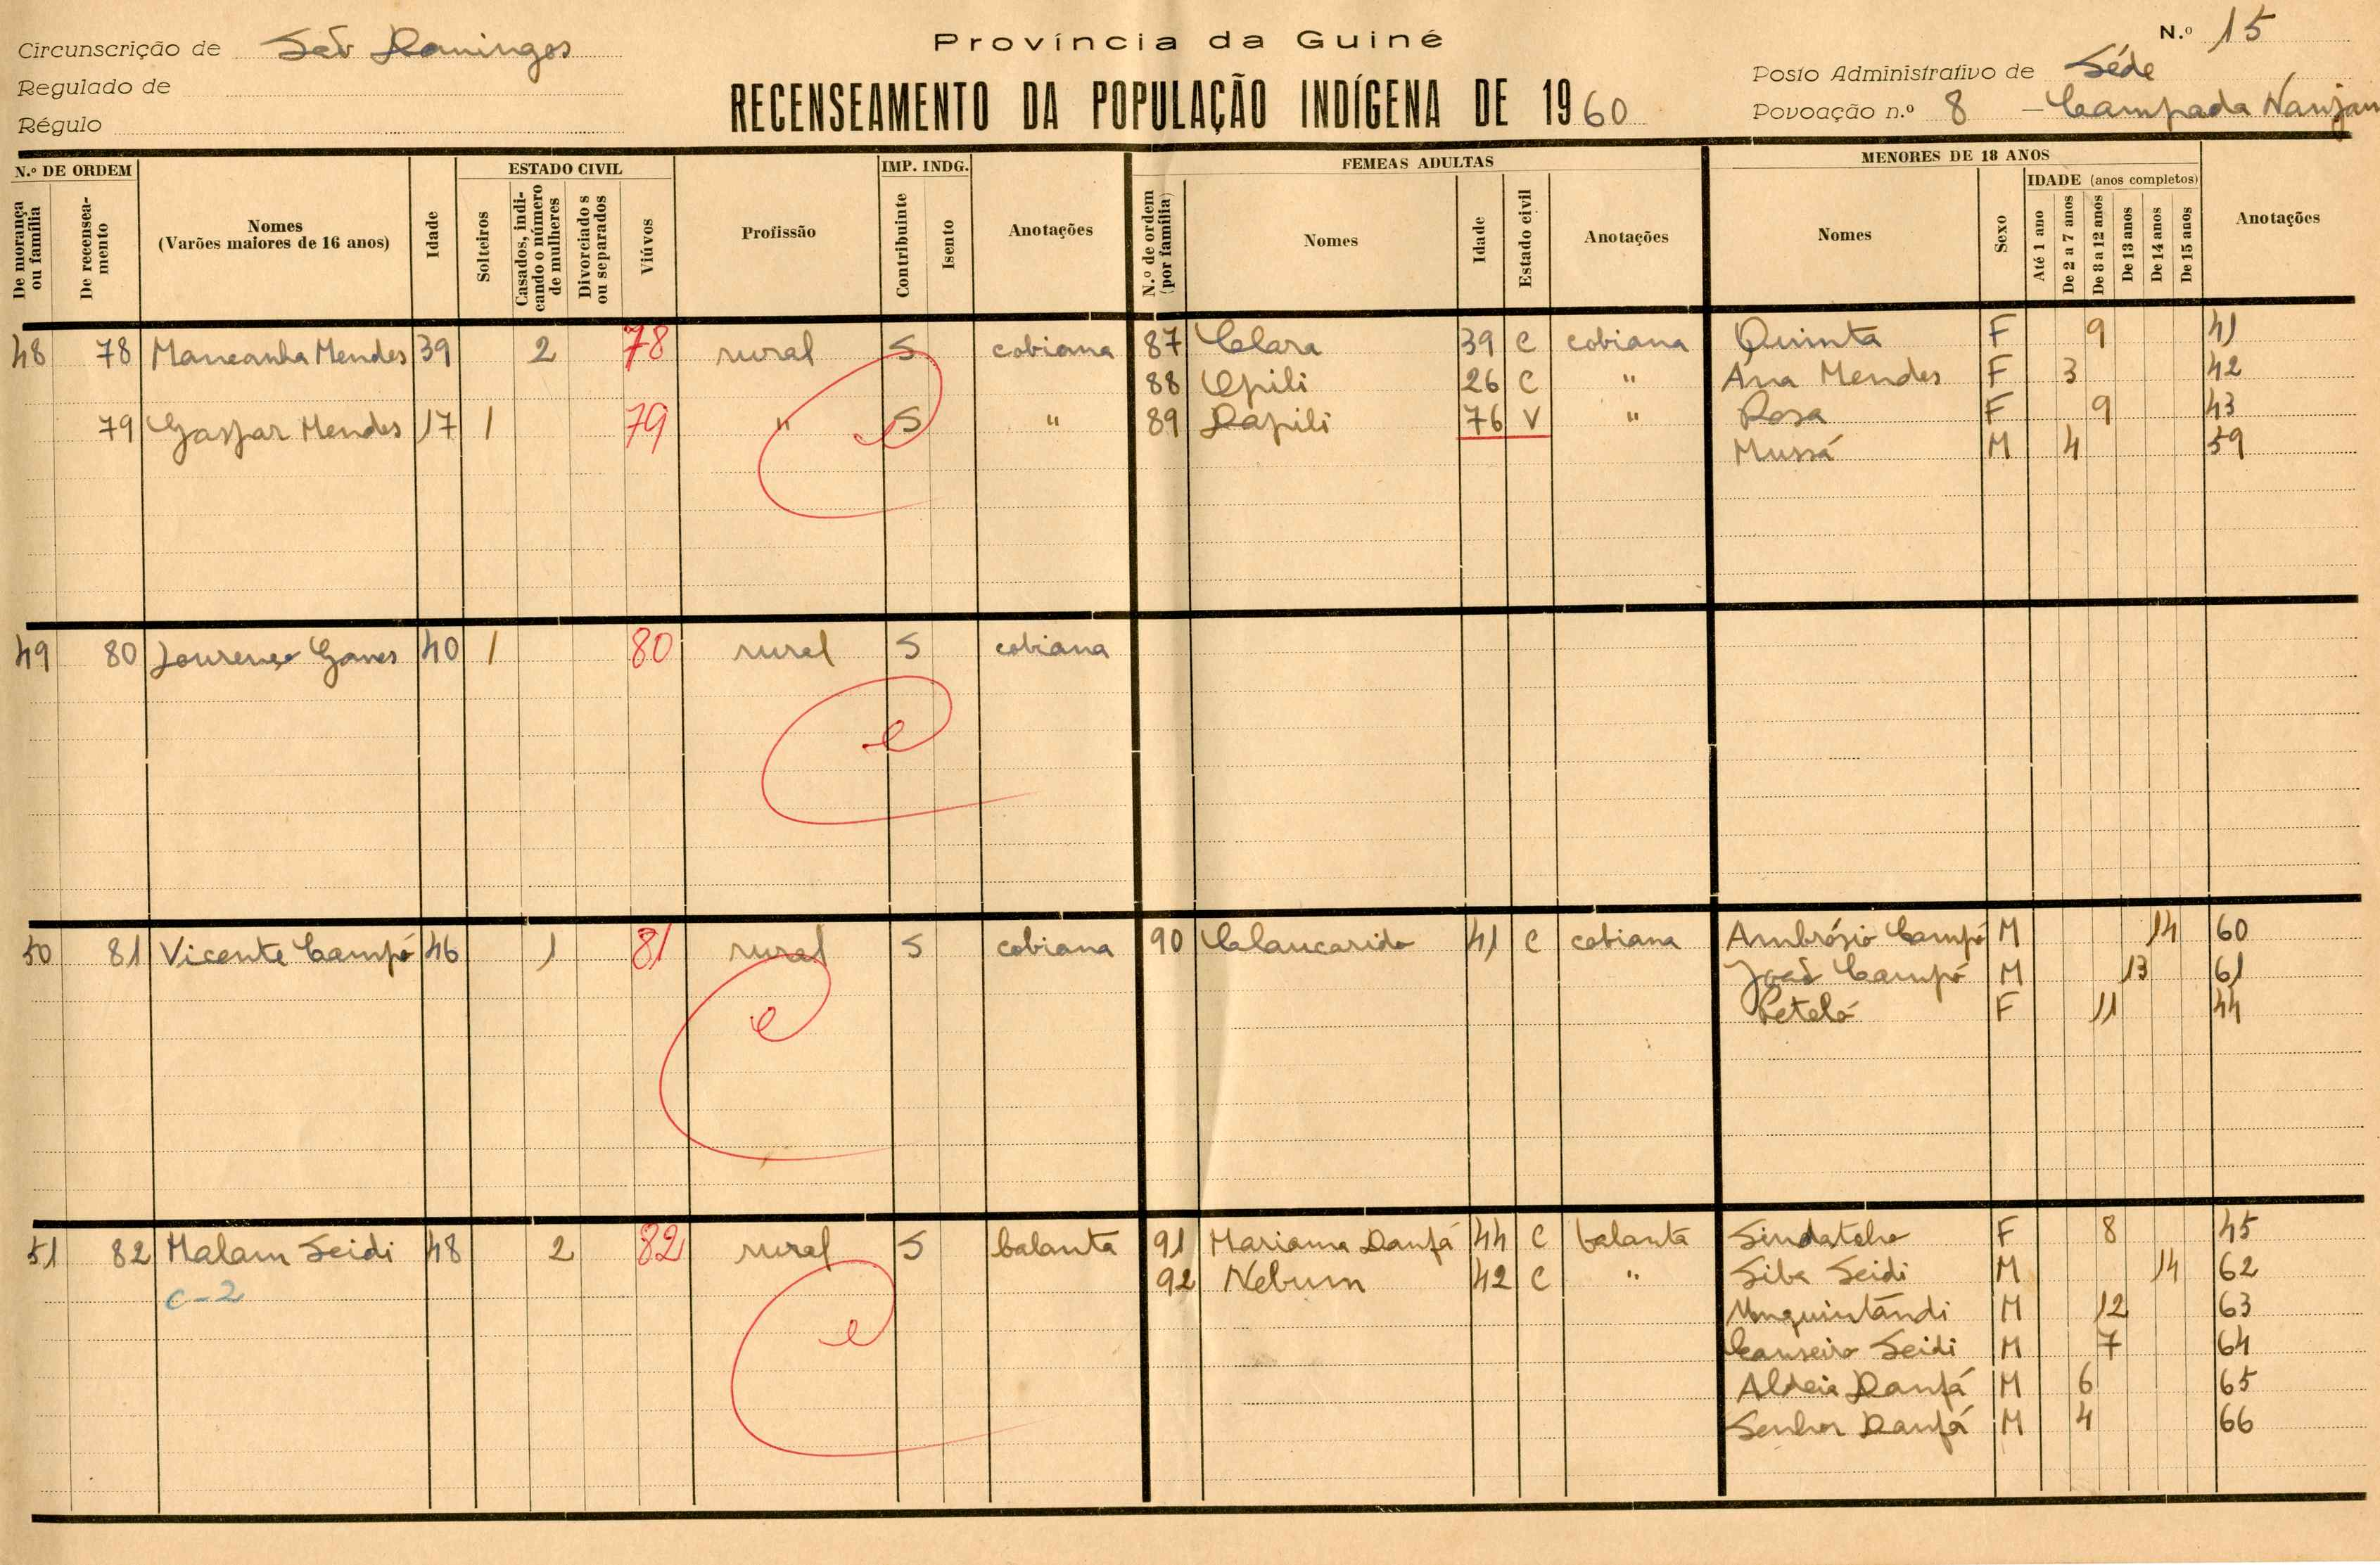 Província da Guiné
N.º 15
Circunscrição de São Domingos
Posto Administrativo de Séde
Regulado de
RECENSEAMENTO DA POPULAÇÃO INDÍGENA DE 1960
Povoação n.º 8 - Campada Nanjan
Régulo
N.º DE ORDEM
De morança ou família
De recenseamento
Nomes
(Varões maiores de 16 anos)
Idade
ESTADO CIVIL
Solteiros
Casados, indicando o número de mulheres
Divorciados ou separados
Viúvos
Profissão
IMP. INDG.
Contribuinte
Isento
Anotações
FEMEAS ADULTAS
N.º de ordem (por família)
Nomes
Idade
Estado civil
Anotações
MENORES DE 18 ANOS
Nomes
Sexo
IDADE (anos completos)
Até 1 ano
De 2 a 7 anos
De 8 a 12 anos
De 13 anos
De 14 anos
De 15 anos
Anotações
48 78 Mancanha Mendes 39 2 78 rural S cobiana 87 Clara 39 C cobiana Quinta F 9 41
88 Opili 26 C " Ana Mendes F 3 42
79 Gaspar Mendes 17 1 79 " S " 89 Dapili 76 V " Rosa F 9 43
Mussá M 4 59
49 80 Lourenço Gomes 40 1 80 rural S cobiana
50 81 Vicente Campó 46 1 81 rural S cobiana 90 Clancarida 41 C cobiana Ambrósio Campó M 14 60
João Campó M 13 61
Petelá F 11 44
51 82 Malam Seidi 48 2 82 rural S balanta 91 Mariama Danfá 44 C balanta F 8 45
C-2 92 Nebum 42 C " Siba Seidi M 14 62
M 12 63
Canseira Seidi M 7 64
Aldeia Danfá M 6 65
Senhor Danfá M 4 66